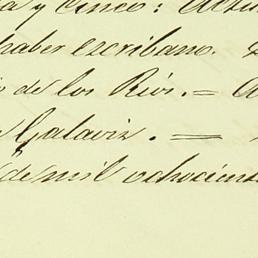 a y cinco: 
haber escribano.
de los Rios. = A
Galaviz. =
de mil ochocient